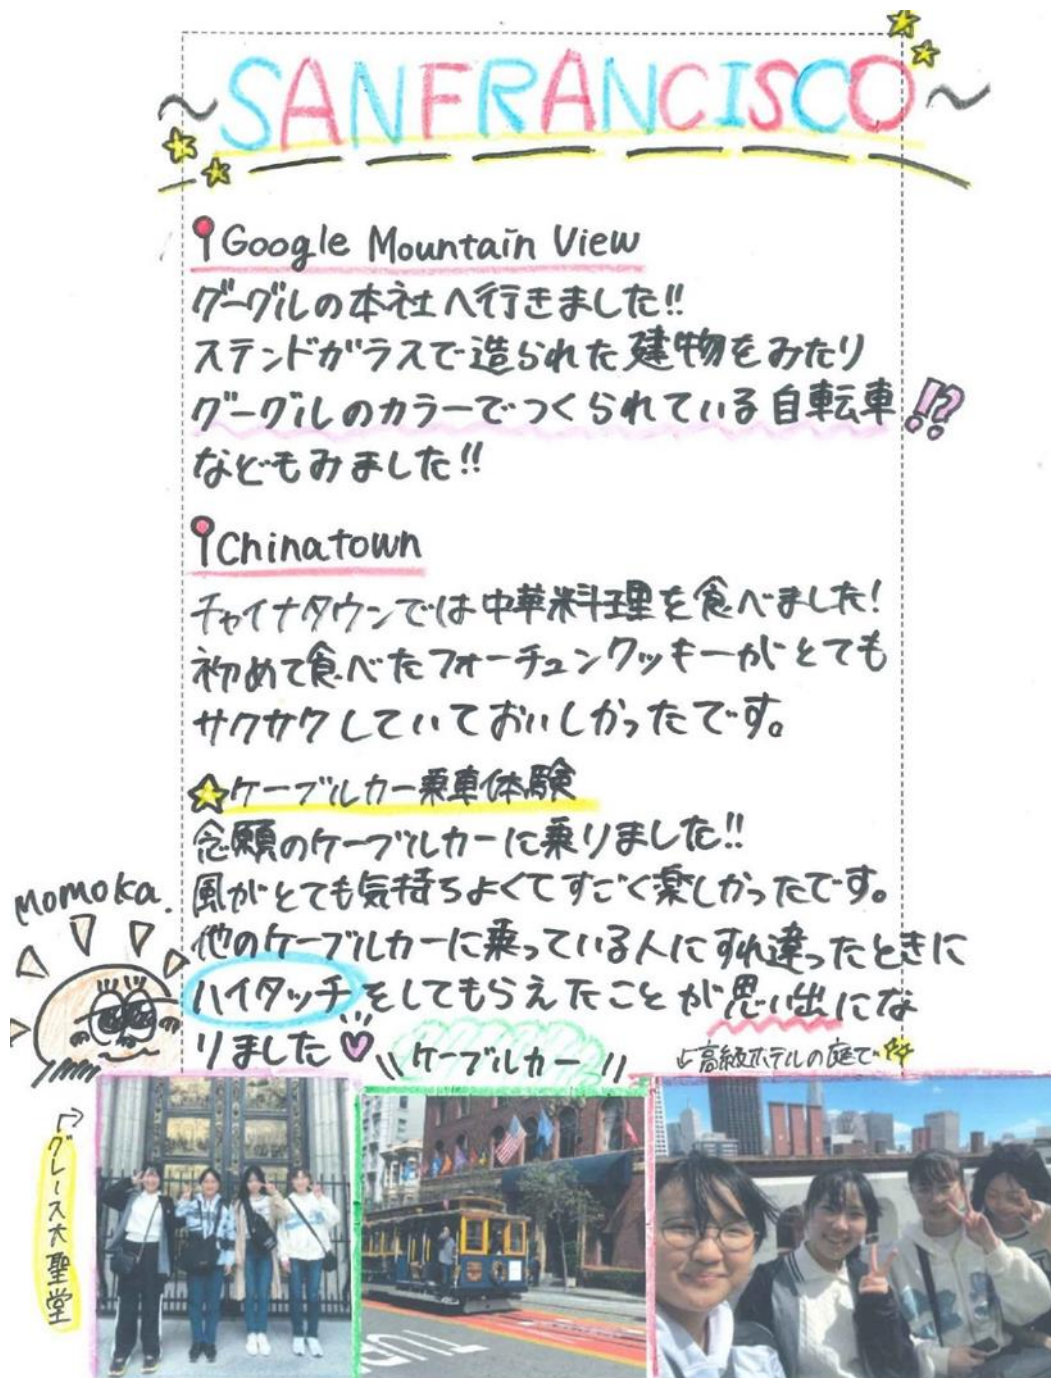 ~SANFRANCISCO~
Google Mountain View
グーグルの本社へ行きました!!
ステンドガラスで造られた建物をみたり
グーグルのカラーでつくられている自転車!?
などもみました!!
Chinatown
チャイナタウンでは中華料理を食べました!
初めて食べたフォーチュンクッキーがとても
サクサクしていておいしかったです。
☆ケーブルカー乗車体験
念願のケーブルカーに乗りました!!
風がとても気持ちよくてすごく楽しかったです。
他のケーブルカーに乗っている人にすれ違ったときに
ハイタッチをしてもらえたことが思い出にな
りました♡
momoka.
\\ケーブルカー//
↓高級ホテルの庭で
グレース大聖堂